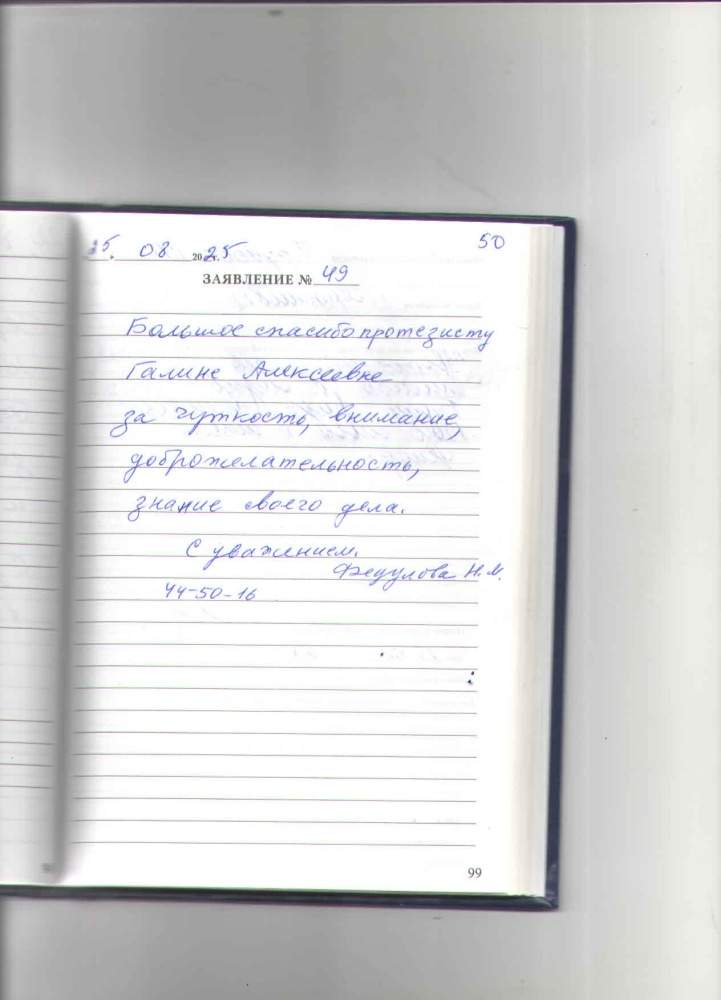 50
25. 08 2025.
ЗАЯВЛЕНИЕ № 49
Большое спасибо протезисту
Галине Алексеевне
за чуткость, внимание,
доброжелательность,
знание своего дела.
С уважением.
Федулова Н.М.
44-50-16
99